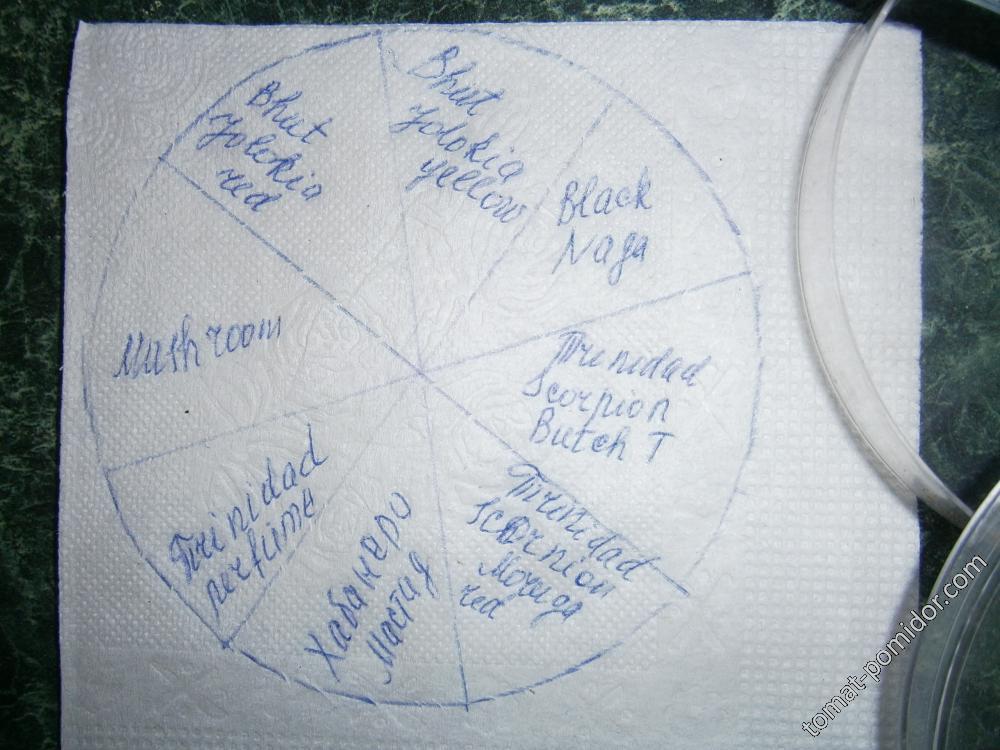 Bhut
Jolokia
red
Bhut
Jolokia
yellow
Black
Naga
Trinidad
Scorpion
Butch T
Trinidad
Scornion
Moruga
red
Хабанеро
Мастад
Trinidad
perfume
Mushroom
tomat-pomidor.com